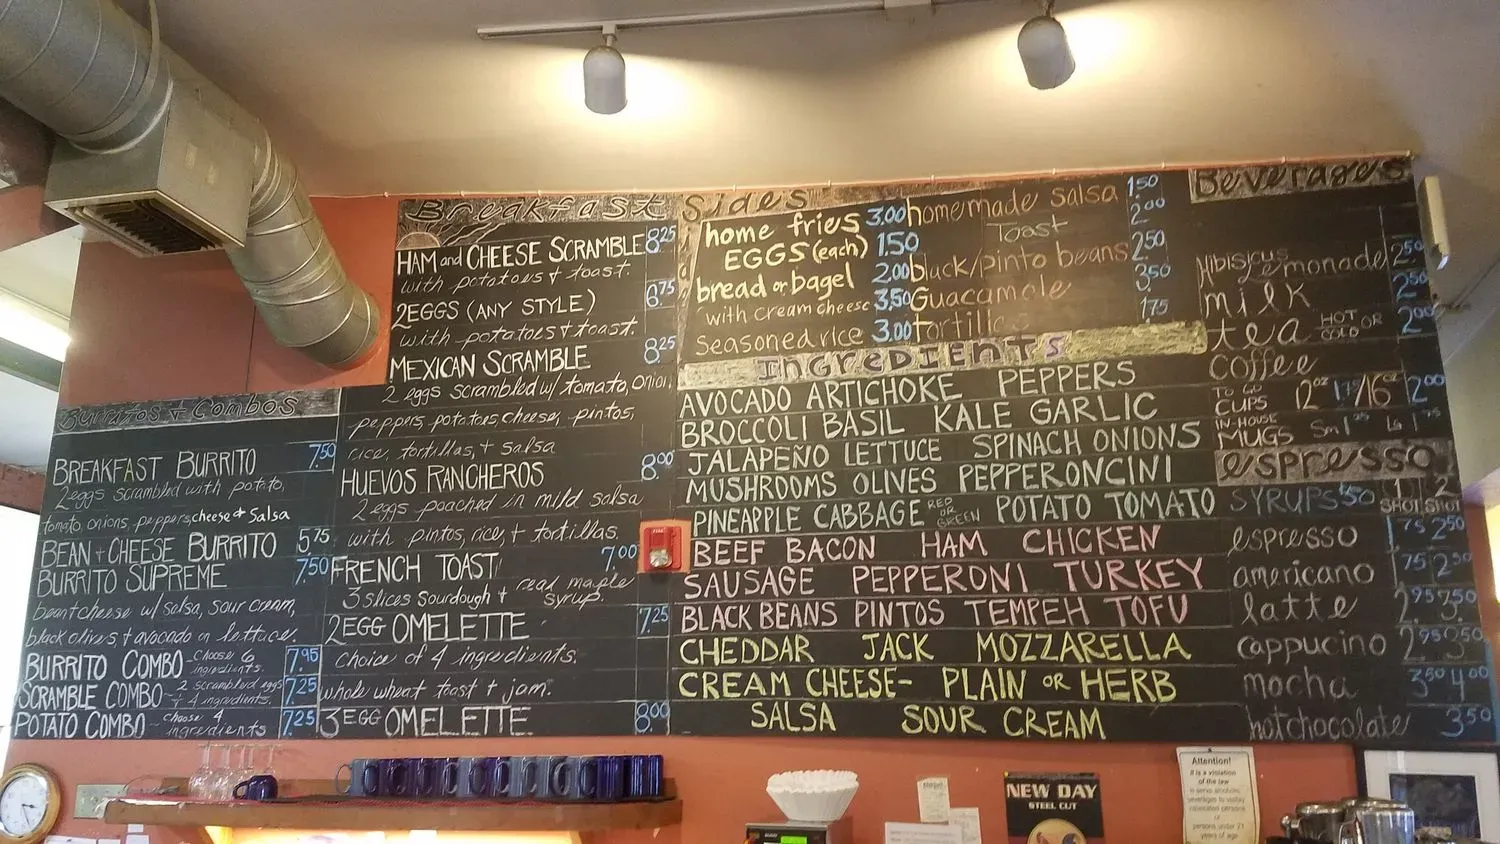 Breakfast
HAM and CHEESE SCRAMBLE 8.25
with potatoes & toast.
2 EGGS (ANY STYLE) 6.75
with potatoes & toast.
MEXICAN SCRAMBLE 8.25
2 eggs scrambled w/ tomato, onion,
peppers, potatoes, cheese, pintos,
rice, tortillas, & salsa
HUEVOS RANCHEROS 8.00
2 eggs poached in mild salsa
with pintos, rice, & tortillas.
FRENCH TOAST 7.00
3 slices sourdough & real maple
syrup.
2 EGG OMELETTE 7.25
choice of 4 ingredients.
whole wheat toast & jam.
3 EGG OMELETTE 8.00
Burritos & Combos
BREAKFAST BURRITO 7.50
2 eggs scrambled with potato,
tomato, onions, peppers, cheese & salsa
BEAN & CHEESE BURRITO 5.75
BURRITO SUPREME 7.50
bean & cheese w/ salsa, sour cream,
black olives, & avocado on lettuce.
BURRITO COMBO - choose 6 ingredients. 7.95
SCRAMBLE COMBO - 2 scrambled eggs + 4 ingredients. 7.25
POTATO COMBO - choose 4 ingredients 7.25
Sides
home fries 3.00
EGGS (each) 1.50
bread or bagel 2.00
with cream cheese 3.50
seasoned rice 3.00
homemade salsa 1.50
Toast 2.00
black/pinto beans 2.50
Guacamole 3.50
tortillas 1.75
Ingredients
AVOCADO ARTICHOKE PEPPERS
BROCCOLI BASIL KALE GARLIC
JALAPEÑO LETTUCE SPINACH ONIONS
MUSHROOMS OLIVES PEPPERONCINI
PINEAPPLE CABBAGE RED OR GREEN POTATO TOMATO
BEEF BACON HAM CHICKEN
SAUSAGE PEPPERONI TURKEY
BLACK BEANS PINTOS TEMPEH TOFU
CHEDDAR JACK MOZZARELLA
CREAM CHEESE - PLAIN OR HERB
SALSA SOUR CREAM
Beverages
Hibiscus Lemonade 2.50
milk 2.50
tea HOT OR COLD 2.00
coffee
TO GO CUPS 12oz 1.75 / 16oz 2.00
IN-HOUSE MUGS Sm 1.25 Lg 1.75
espresso
SYRUPS .50 1 SHOT 2 SHOT
espresso 1.75 2.50
americano 1.75 2.50
latte 2.95 3.50
cappuccino 2.95 3.50
mocha 3.50 4.00
hot chocolate 3.50
FIRE
NEW DAY
STEEL CUT
Attention!
It is a violation
of the law
to serve alcoholic
beverages to visibly
intoxicated persons
or
persons under 21
years of age